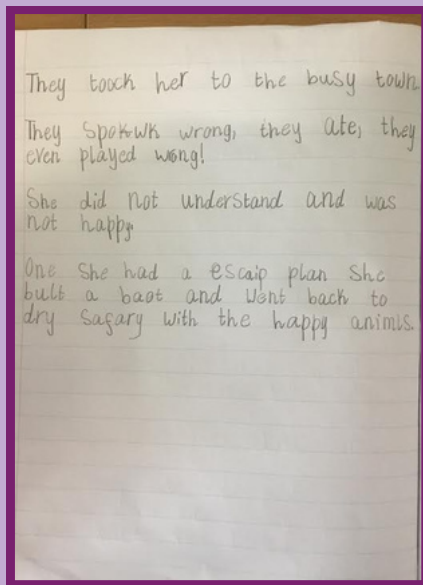 They toock her to the busy town
They spokwk wrong, they ate, they
even played wong!
She did not understand and was
not happy.
One She had a escaip plan She
bult a baot and went back to
dry safary with the happy animls.